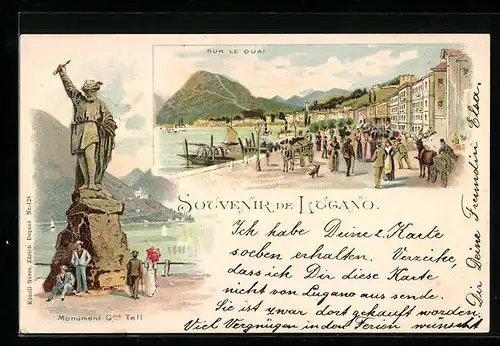 SUR LE QUAI
SOUVENIR DE LUGANO.
Monument Gme Tell
Künzli frères, Zürich. Déposé. Nr. 128
Ich habe Deine 2. Karte
soeben erhalten. Verzeihe,
dass ich Dir diese Karte
nicht von Lugano aus sende.
Sie ist zwar dort gekauft worden.
Viel Vergnügen in den Ferien wünscht
Dir Deine Freundin Elsa.